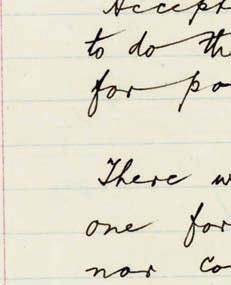 Accept
to do the
for po
There w
one for
nor co